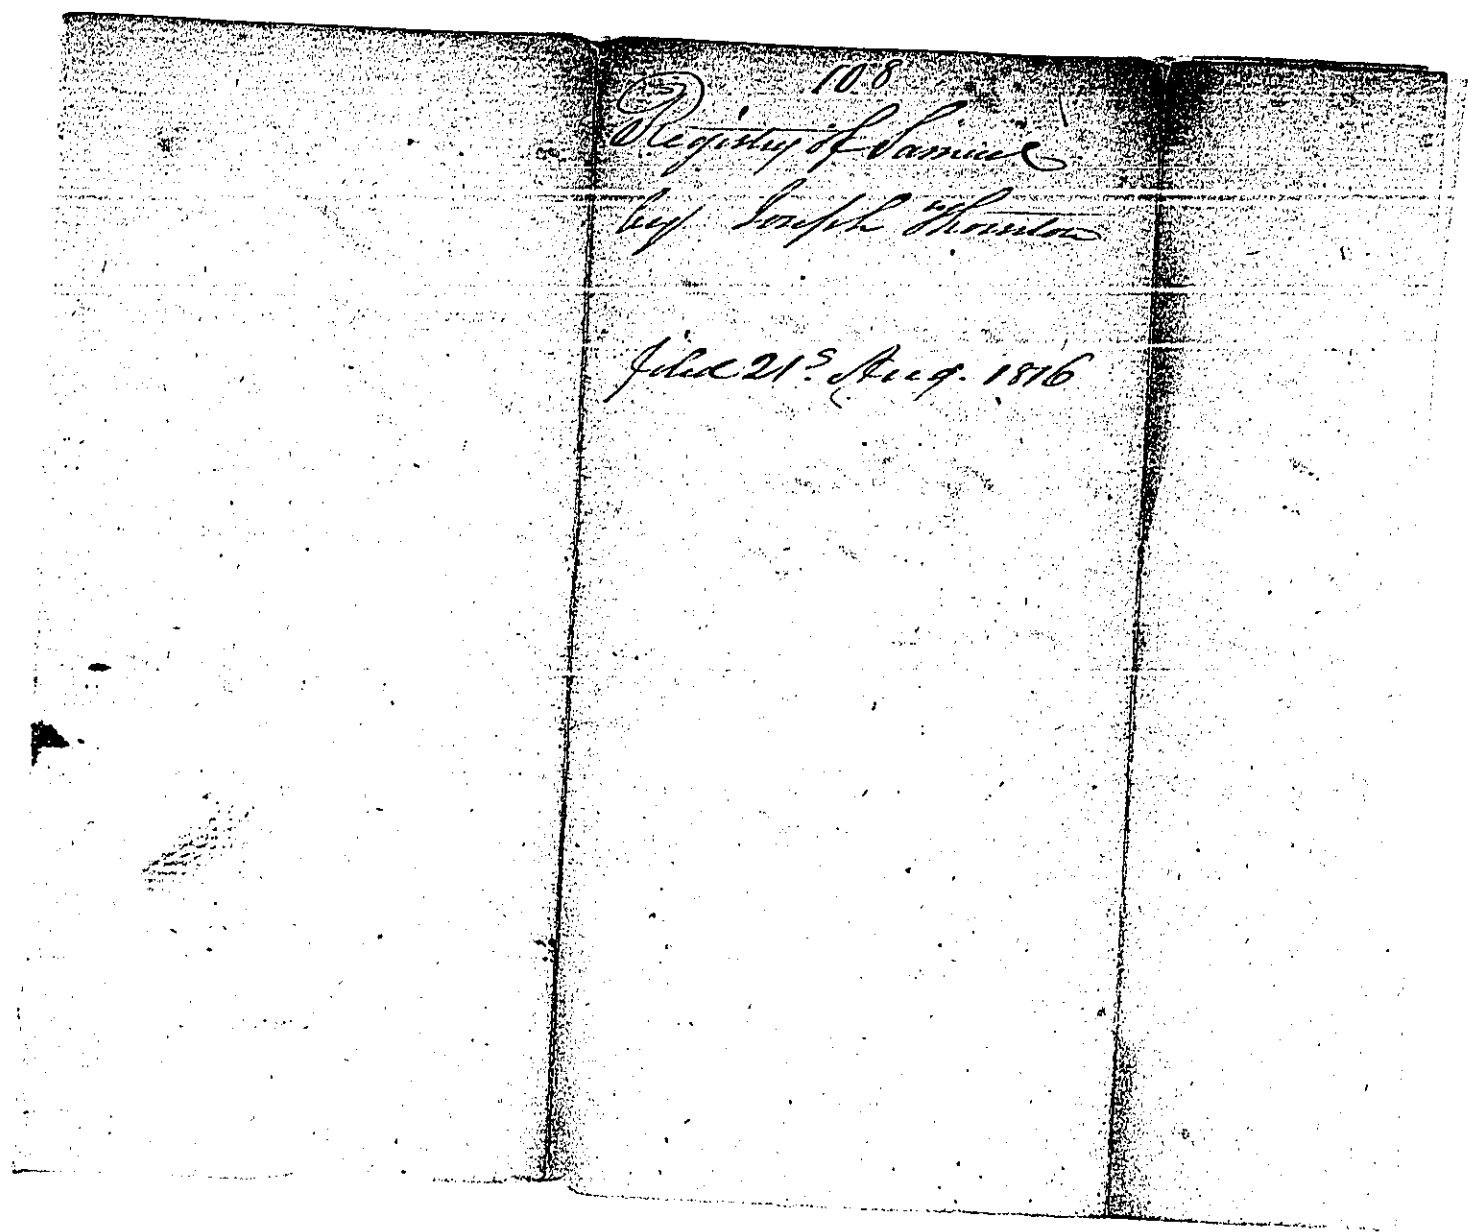 108
Registry of Samuel
by Joseph Thornton
filed 21s. Aug. 1816